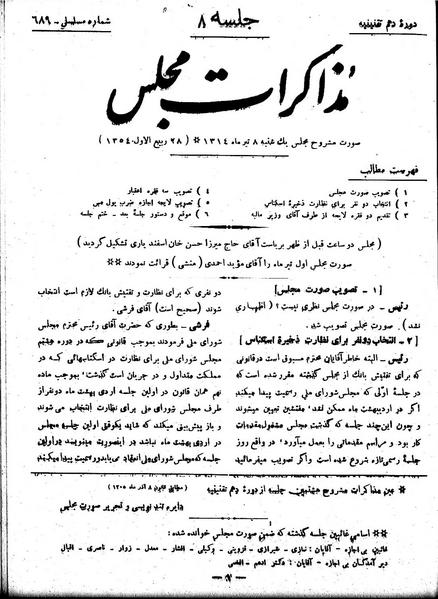 دورهٔ دهم تقنینیه
جلسه ۸
شماره مسلسل - ۶۸۹
مذاکرات مجلس
صورت مشروح مجلس یك شنبه ۸ تیر ماه ۱۳۱۴ * ( ۲۸ ربیع الاول ۱۳۵۴ )
فهرست مطالب
۱ ) تصویب صورت مجلس
۲ ) انتخاب دو نفر برای نظارت ذخیرهٔ اسکناس
۳ ) تقدیم دو فقره لایحه از طرف آقای وزیر مالیه
۴ ) تصویب سه فقره اعتبار
۵ ) تصویب لایحه اجازه ضرب پول مسی
۶ ) موقع و دستور جلسهٔ بعد - ختم جلسه
( مجلس دو ساعت قبل از ظهر بریاست آقای حاج میرزا حسن خان اسفند یاری تشکیل گردید )
صورت مجلس اول تیر ماه را آقای مؤید احمدی ( منشی ) قرائت نمودند **
[ ۱ - تصویب صورت مجلس ]
رئیس - در صورت مجلس نظری نیست ؟ ( اظهاری
نشد ) . صورت مجلس تصویب شد .
[ ۲ - انتخاب دو نفر برای نظارت ذخیرهٔ اسکناس ]
رئیس - البته خاطر آقایان محترم مسبوق است در قانونی
که برای تفتیش بانك از مجلس گذشته مقرر شده است که
در جلسهٔ اولی که مجلس شورای ملی رسمیت پیدا میکند
اگر در اردیبهشت ماه ممکن نشد مفتشین تعیین میشوند
و چون این چند جلسه که گذشت مجلس مشغول مقدمات
کار بود و مراسم مقدماتی را بعمل میآورد در واقع روز
جلسهٔ رسمی تازه شروع شده است و اگر تصویب میفرمائید
دو نفری که برای نظارت و تفتیش بانك لازم است انتخاب
شوند ( صحیح است ) آقای فرشی .
فرشی - بطوری که حضرت آقای رئیس محترم مجلس
شورای ملی فرمودند بموجب قانونی که در دوره هشتم
مجلس شورای ملی برای نظارت در اسکناسهائی که در
مملکت متداول و در جریان است گذشت بموجب ماده
نهم همان قانون در اولین جلسه اردی بهشت ماه دو نفر از
طرف مجلس شورای ملی برای نظارت انتخاب می شوند
و باز پیش بینی میکند که شاید یکوقتی اولین جلسه مجلس
در اردی بهشت ماه نباشد در اینصورت مینویسد در اولین
جلسه که مجلس شورای ملی انعقاد می یابد و رسمیت پیدا میکند
* عین مذاکرات مشروح هشتمین جلسه از دورهٔ دهم تقنینیه ( مطابق قانون ۸ آذر ماه ۱۳۰۵ )
دایره تند نویسی و تحریر صورت مجلس
** اسامی غائبین جلسه گذشته که ضمن صورت مجلس خوانده شده :
غائبین بی اجازه - آقایان : نمازی - شیرازی - قزوینی - وکیلی - افشار - معدل - زوار - ناصری - اقبال
دیر آمدگان بی اجازه - آقایان : دکتر ادهم - اقصی